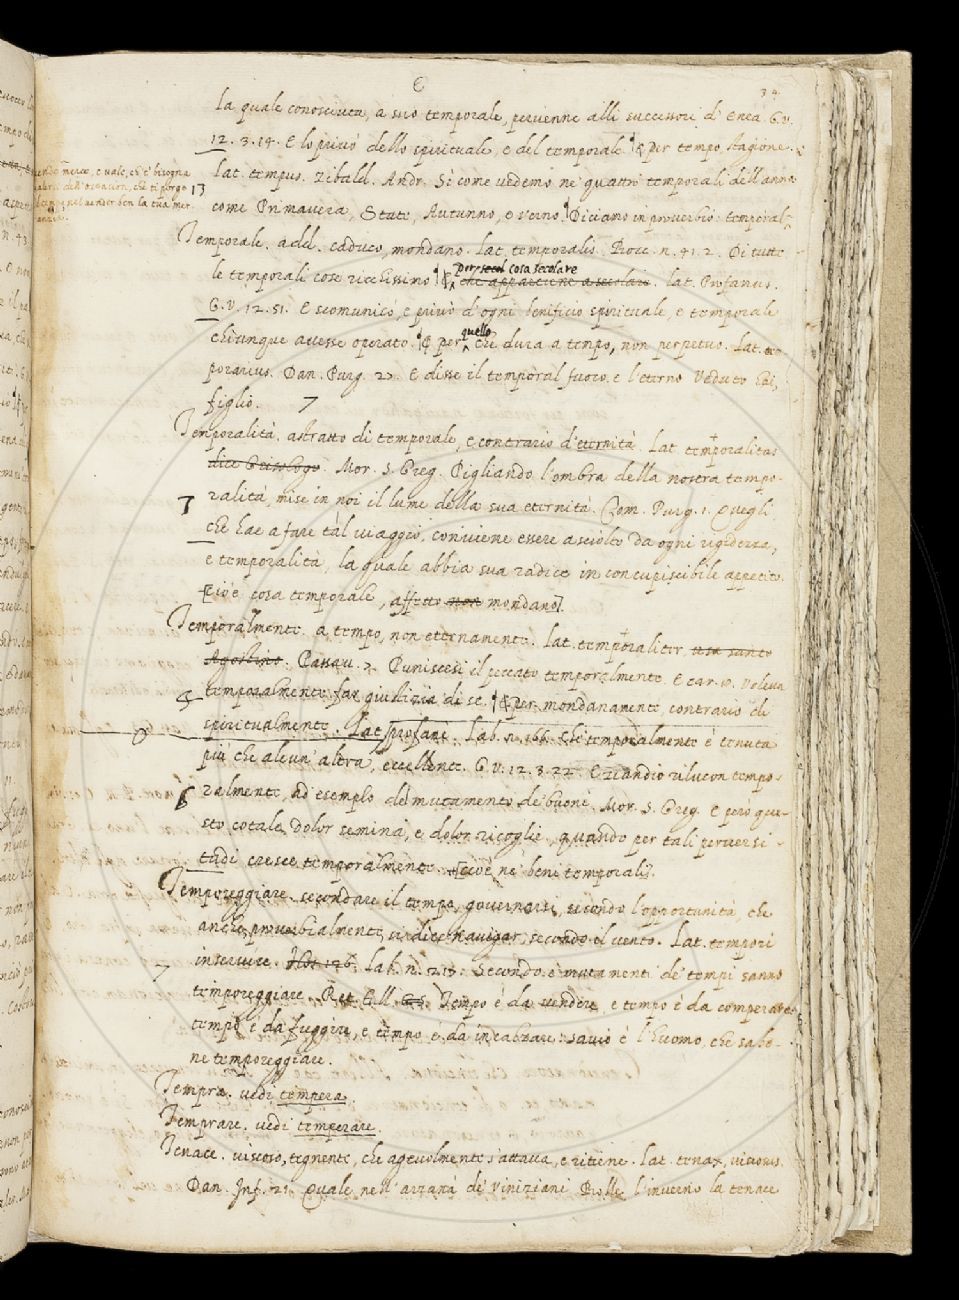 34
la quale conosciuta, a suo temporale, pervenne alli successori d'Enea G.V.
12. 3. 14. E lo privò dello spirituale, e del temporale. ¶ per tempo, stagione.
Lat. tempus. Zibald. Andr. Sì come vedemo ne quattro temporali dell'anno
13
come Primavera, State, Autunno, e verno. Diciano in proverbio: temporal
Temporale. add. caduco, mondano. Lat. temporalis. Bocc. n. 41. 2. Di tutte
le temporali cose ricchissimo ¶ per cosa secolare che appartiene a secolari. Lat. Profanus.
G.V. 12. 51. E scomunicò, e privò d'ogni beneficio spirituale, e temporale
chiunque avesse operato. ¶ per quello che dura a tenpo, non perpetuo. Lat. tem-
porarius. Dan. Purg. 27. E disse il temporal fuoco, e l'eterno Veduto hai,
figlio. 7
Temporalità. astratto di temporale, e contrario d'eternità. Lat. temporalitas
dice Grisologo. Mor. S. Greg. Pigliando l'ombra della nostra tempo-
7 ralità, mise in noi il lume della sua eternità. Com. Purg. 1. Quegli
che hae a fare tal viaggio, conviene essere asciolto da ogni rigidezza,
e temporalità, la quale abbia sua radice in concupiscibile appetito.
[cioè cosa temporale, affetto non mondano].
Temporalmente. a tempo, non eternamente. Lat. temporaliter usa santo
Agostino. Passav. 7. Puniscesi il peccato temporalmente. E car. 10. Voleva
5 temporalmente far giustizia di se. ¶ per mondanamente, contrario di
spiritualmente. Lat. profane. Lab. n. 166. Che temporalmente è tenuta
più che alcun' altra, eccellente. G.V. 12. 3. 22. Eziandio rilucon tempo-
6 ralmente, ad esemplo del mutamento de buoni. Mor. S. Greg. E però que-
sto cotale dolor semina, e dolor ricoglie, quando per tali perversi-
tadi cresce temporalmente. [cioè ne' beni temporali].
Temporeggiare. secondare il tempo, governarsi, secondo l'opportunità, che
anche proverbialmente si dice navigar, secondo il vento. Lat. tempori
7 inservire. Lab. n. 215. Secondo e mutamenti de tempi sanno
temporeggiare. Ret. Tull. Tempo è da vendere, e tempo è da comperare
tempo è da fuggire, e tempo è da incalzare: savio è l'huomo, che sa be-
ne temporeggiare.
Tempra. vedi tempera.
Temprare. vedi temperare.
Tenace. viscoso, tegnente, che agevolmente s'attacca, e ritiene. Lat. tenax, viscosus
Dan. Inf. 21. Quale nell'arzanà de' Viniziani Bolle l'inverno la tenace